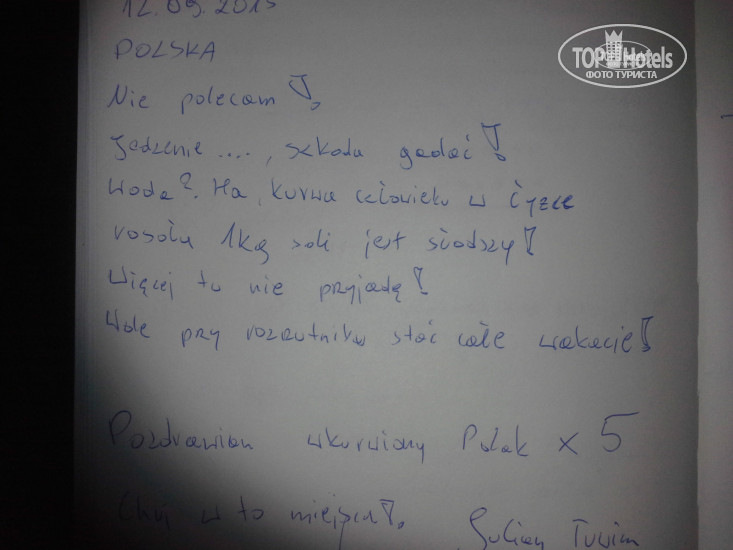 12.09.2015
POLSKA
Nie polecam!
Jedzenie ...., szkoda gadać!
Woda? Ha, kurwa człowieku w łyżce
rosołu 1kg soli jest słodszy!
Więcej tu nie przyjadę!
Wole przy rozrutniku stać całe wakacje!
Pozdrawiam wkurwiony Polak x 5
Chuj w to miejsce!. Julian Tuwim
TOP Hotels
ФОТО ТУРИСТА